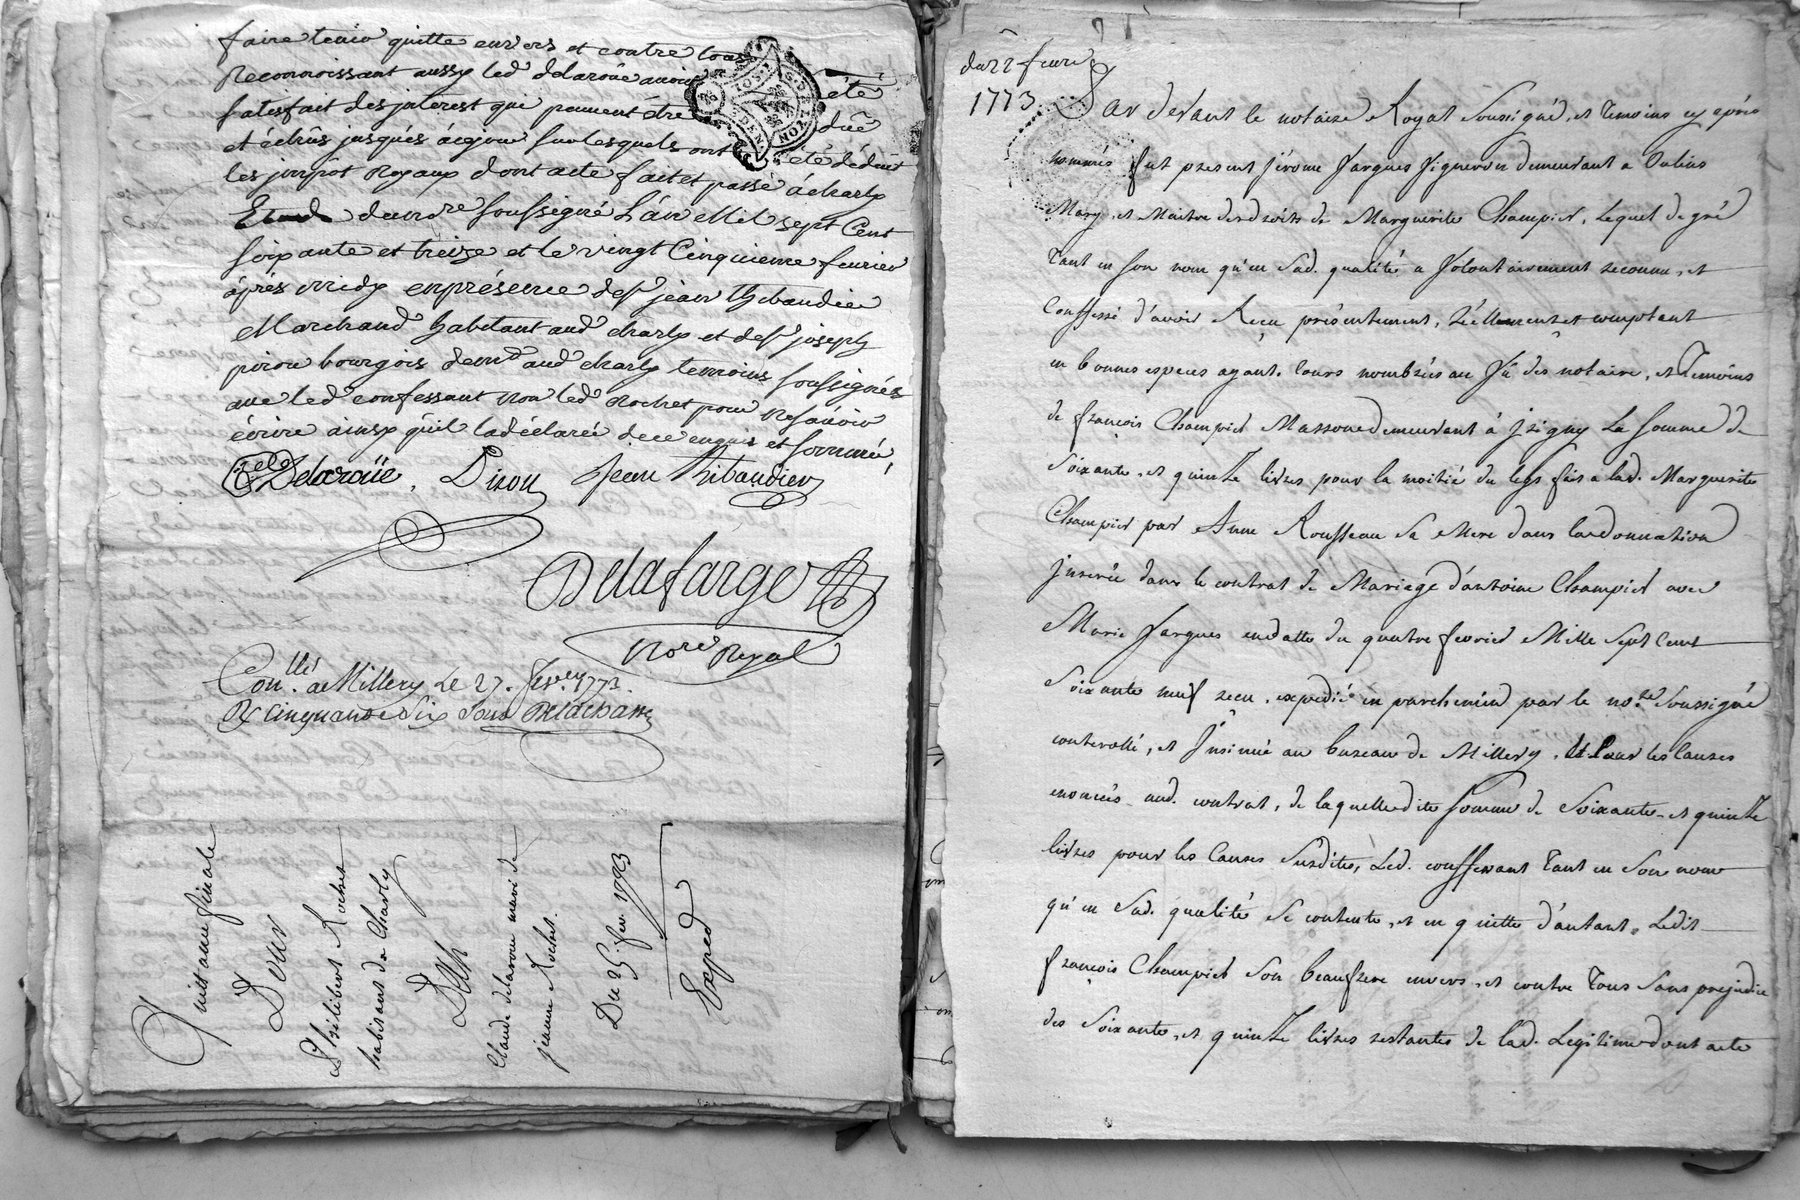 faire tenir quitte envers et contre tous
Reconnoissant aussy led delaroüe avoir été
satisfait des jnterest qui peuvent étre dûe
et échûs jusqués àcejour sur lesquels ont été déduit
les jmpot Royaux dont acte fait et passé à charly
Etude dud nre soussigné L'an Mil sept Cent
soixante et treize et le vingt Cinquieme feurier
áprés midy enprésence de sr jean thibaudier
Marchand habitant aud charly et de sr joseph
pirou bourgois demt aud charly temoins soussignés
avec led confessant non led Rochet pour ne sçavoir
écrire ainsy qúil la déclaré de ce enquis et sommé,
Delaroüe, Pirou Jean Thibaudier
Delafarge
Nore Royal
Conllé a Millery Le 27. fevr 1773.
R cinquante Six Sous Delachass
Quittance finale
Pour
Philibert Rochet
habitant de Charly
De
Claude delaroue mari de
jeanne Rochet.
Du 25 fer. 1773
Exped
du 22 feurier
1773
Par devant le notaire Royal Soussigné, et Temoins cy après
nommés fut present Jérome Vargues Vigneron demeurant a Oulins
Mary, et Maitre des droits de Marguerite Champiet, Lequel de gré
Tant en son nom qu'en Sad. qualité a Volontairement reconnu, et
Confessé d'avoir Reçu présentement, réellement et comptant
en bonnes especes ayant Cours nombrées au Vu des notaire, et Temoins
de françois Champiet Masson demeurant à jrigny La Somme de
Soixante, et quinze livres pour la moitié du legs fait a lad. Marguerite
Champiet par Anne Rousseau Sa Mere dans la donnation
jnserée dans le contrat de Mariage d'antoine Champiet avec
Marie Vargues en datte du quatre fevrier Mille Sept Cent
Soixante neuf recu, expedié en parchemin par le nore. Soussigné
controllé, et jnsinué au bureau de Millery, et Pour les Causes
enoncées aud. contrat, de laquelle dite Somme de Soixante, et quinze
livres pour les Causes Susdites, Led. confessant Tant en Son nom
qu'en Sad. qualité Se contente, et en quitte d'autant, Ledit
françois Champiet Son beaufrere envers, et contre Tous Sans prejudice
des Soixante, et quinze livres restantes de lad. Legitime dont acte